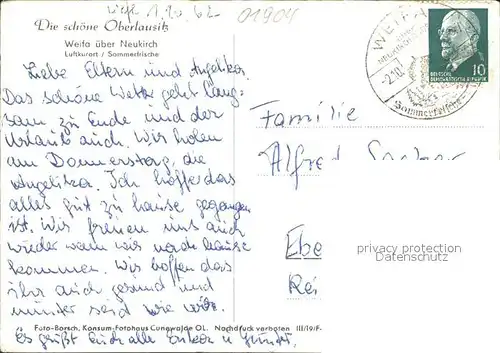 Weifa 1.10.62
01904
Die schöne Oberlausitz
Weifa über Neukirch
Luftkurort / Sommerfrische
WEIFA
-2.10.
Sommerfrische
10
DEUTSCHE
DEMOKRATISCHE REPUBLIK
Liebe Eltern und Angelika.
Das schöne Wetter geht lang-
sam zu Ende und der
Urlaub auch. Wir holen
am Donnerstag, die
Angelika. Ich hoffe das
alles gut zu hause gegangen
ist. Wir freuen uns auch
wieder wenn wir nach hause
kommen. Wir hoffen das
ihr auch gesund und
munter seid wie wir.
Es grüßt Euch alle Erika u Günter.
Familie
Alfred
Ebe
Rei
privacy protection
Datenschutz
Foto-Borsch, Konsum-Fotohaus Cunewalde OL. Nachdruck verboten III/19/F-